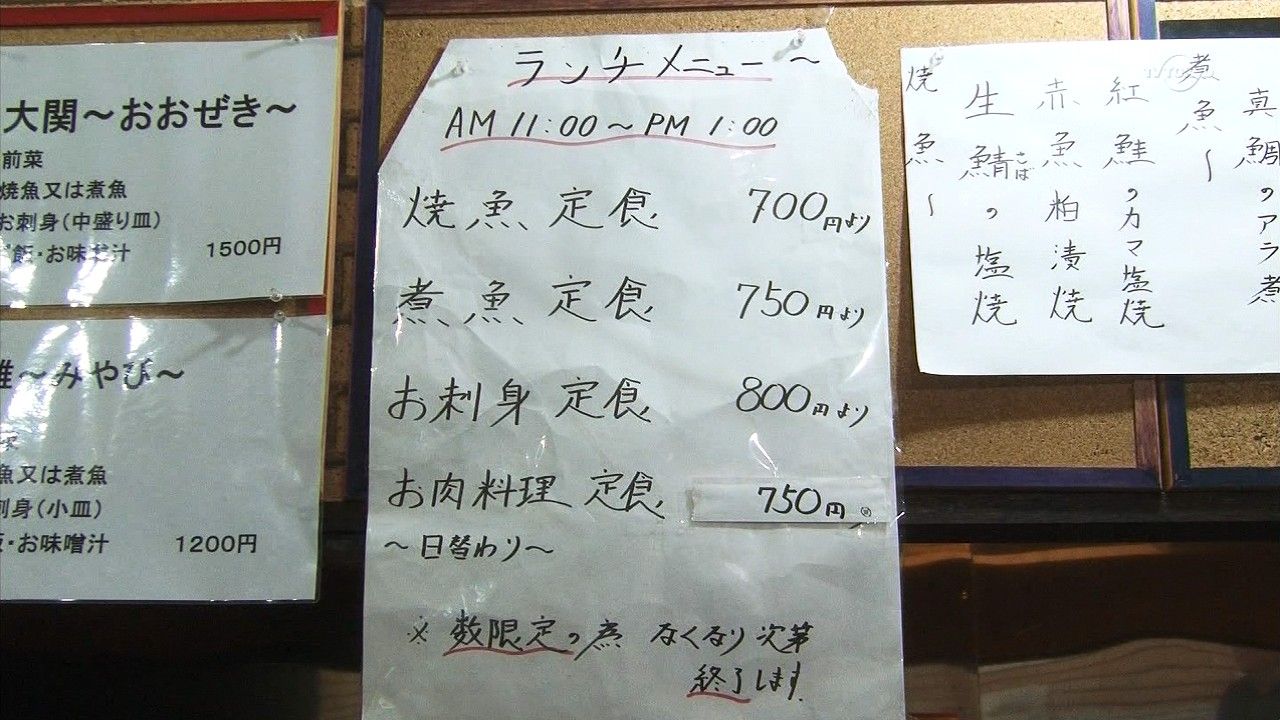 大関～おおぜき～
前菜
焼魚又は煮魚
お刺身(中盛り皿)
飯・お味噌汁 1500円
～みやび～
魚又は煮魚
刺身(小皿)
・お味噌汁 1200円
ランチメニュー～
AM 11:00～PM 1:00
焼魚定食 700円より
煮魚定食 750円より
お刺身定食 800円より
お肉料理定食 750円
～日替わり～
※数限定の為 なくなり次第
終了します
真鯛のアラ煮
煮魚～
紅鮭のカマ塩焼
赤魚粕漬焼
生鯖の塩焼
焼魚～